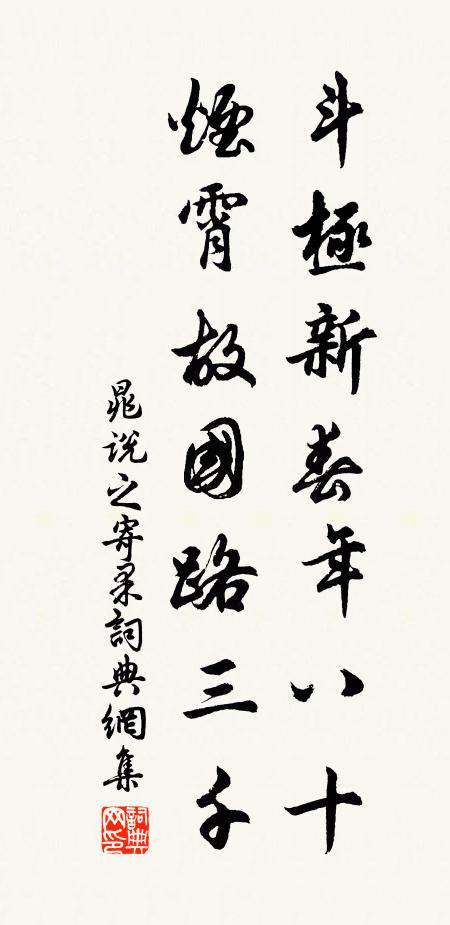 斗極新春年八十
煙霄故國路三千
晁說之寄果詞典網集
詞典網印